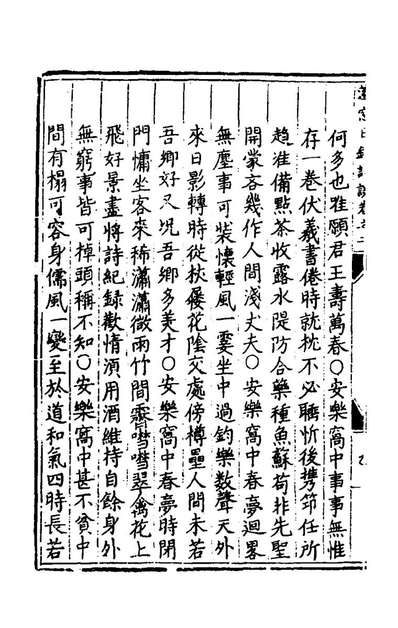 何多也唯願君王壽萬春○安樂窩中事事無惟
存一卷伏羲書倦時就枕不必睡忺後攜筇任所
趨準備點茶收露水隄防合藥種魚蘇苟非先聖
開蒙吝幾作人間淺丈夫○安樂窩中春夢迴畧
無塵事可裝懷輕風一霎坐中過釣樂數聲天外
來日影轉時從杖屨花陰交處傍樽罍人間未若
吾鄉好又況吾鄉多美才○安樂窩中春夢時閉
門慵坐客來稀瀟瀟微雨竹間霽嘒嘒翠禽花上
飛好景盡將詩紀錄歡情須用酒維持自餘身外
無窮事皆可掉頭稱不知○安樂窩中甚不貧中
間有榻可容身儒風一變至於道和氣四時長若